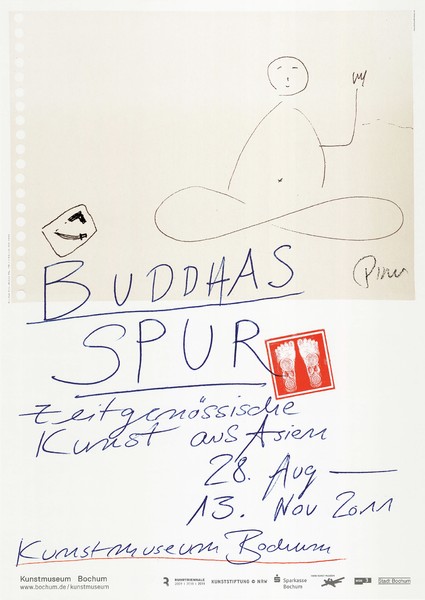 BUDDHAS
SPUR
zeitgenössische
Kunst aus Asien
28. Aug —
13. Nov 2011
Kunstmuseum Bochum
Kunstmuseum Bochum
www.bochum.de/kunstmuseum
KUNSTSTIFTUNG NRW
Sparkasse
Bochum
Stadt Bochum